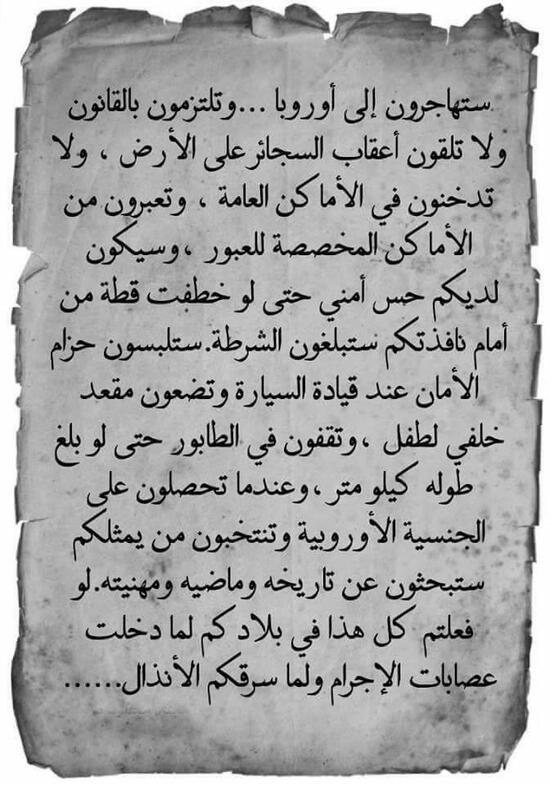 ستهاجرون إلى أوروبا ...وتلتزمون بالقانون
ولا تلقون أعقاب السجائر على الأرض ، ولا
تدخنون في الأماكن العامة ، وتعبرون من
الأماكن المخصصة للعبور ،وسيكون
لديكم حس أمني حتى لو خطفت قطة من
أمام نافذتكم ستبلغون الشرطة.ستلبسون حزام
الأمان عند قيادة السيارة وتضعون مقعد
خلفي لطفل ،وتقفون في الطابور حتى لو بلغ
طوله كيلو متر ،وعندما تحصلون على
الجنسية الأوروبية وتنتخبون من يمثلكم
ستبحثون عن تاريخه وماضيه ومهنيته.لو
فعلتم كل هذا في بلادكم لما دخلت
عصابات الإجرام ولما سرقكم الأنذال......